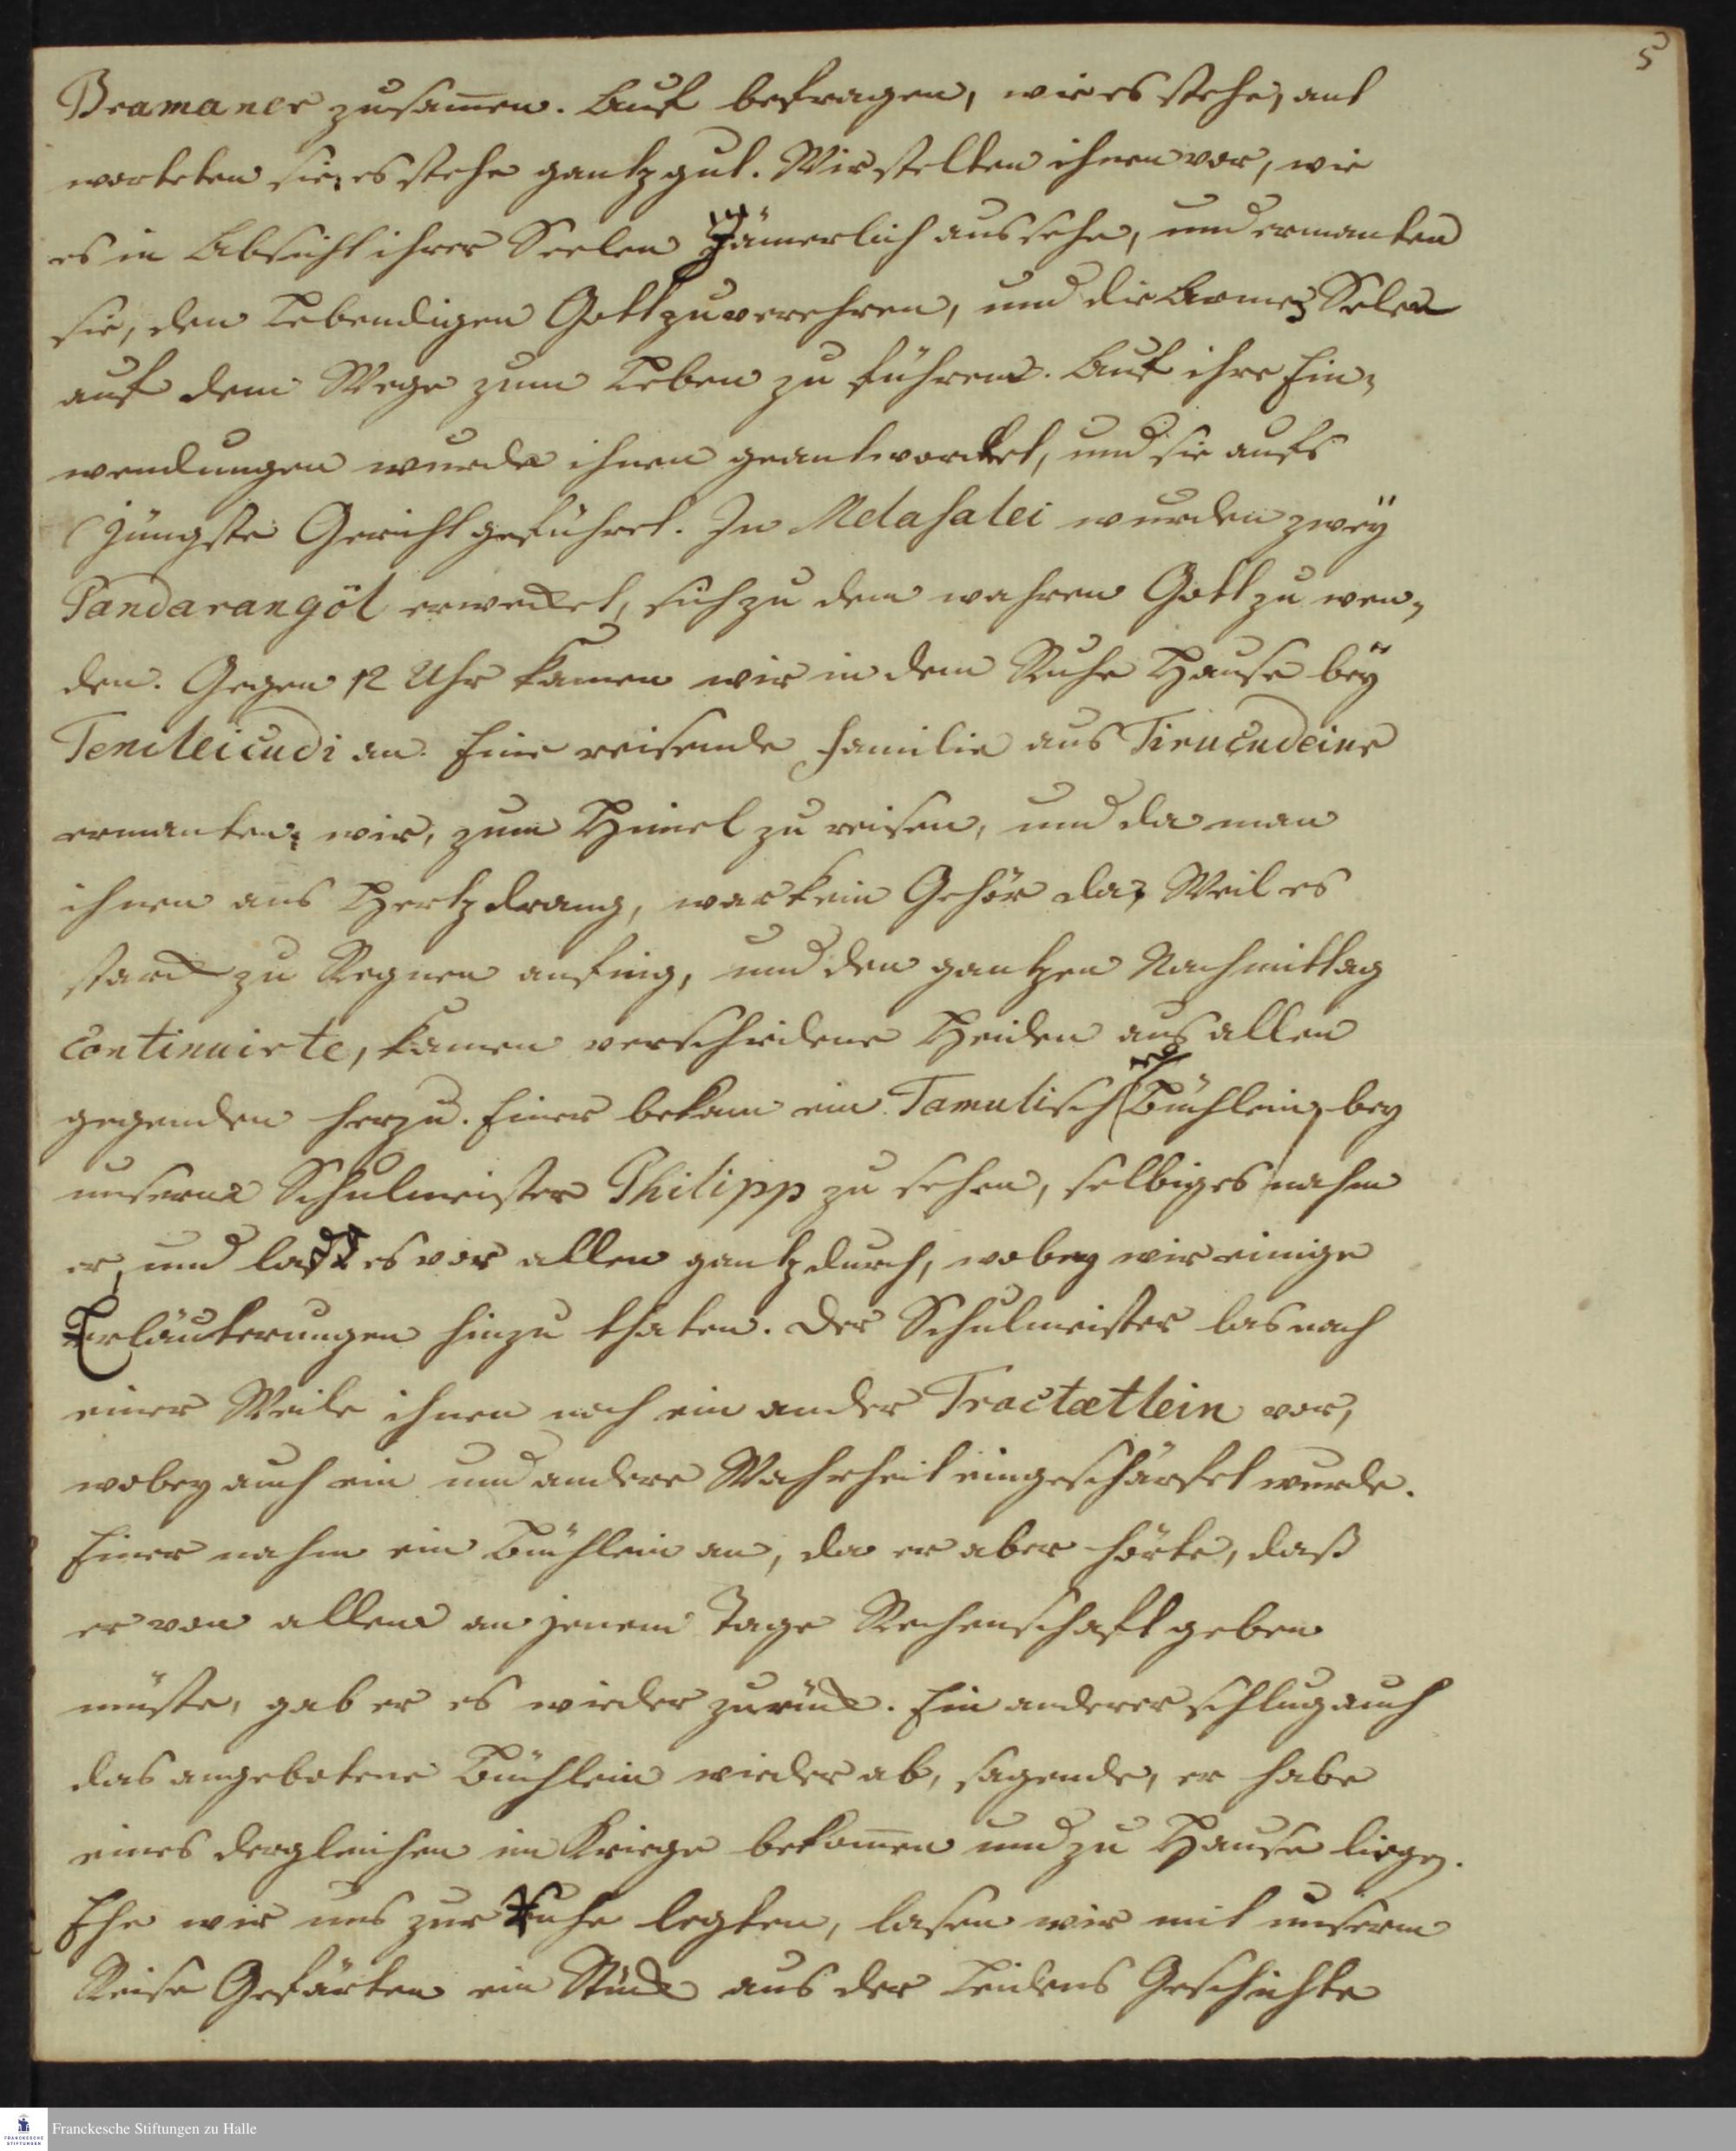 5
Bramaner zusam̅en. Auf befragen, wie es stehe, ant
worteten sie, es stehe gantz gut. Wir stelten ihnen vor, wie
es in Absicht ihrer Seelen jämerlich aussehe, und ermanten
sie, den Lebendigen Gott zu verehren, und die Arme Selen
auf dem Wege zum Leben zu führen. Auf ihre Ein-
wendungen wurde ihnen geantwortet, und sie aufs
jüngste Gericht geführet. In Melasalei wurden zweÿ
Pandarangöl erwecket, sich zu dem wahren Gott zu wen-
den. Gegen 12 Uhr kamen wir in dem Ruhe Hause beÿ
Tenileicudi an. Eine reisende Familie aus Tirucudeiur
ermanten wir, zum Himel zu reisen, und da man
ihnen ans Hertz drang, war kein Gehör da, Weil es
starck zu Regnen anfing, und den gantzen Nachmittag
continuirte, kamen verschidene Heiden aus allen
gegenden herzu. Einer bekam ein Tamulisch Büchlein, bey
unserm Schulmeister Philipp zu sehen, selbiges nahm
er, und laß es vor allen gantz durch, wobey wir einige
Erläuterungen hinzu thaten. Der Schulmeister las nach
einer Weile ihnen noch ein ander Tractætlein vor,
wobey auch ein und andere Wahrheit eingeschärfet wurde.
Einer nahm ein Büchlein an, da er aber hörte, daß
er von allem an jenem Tage Rechenschaft geben
müste, gab er es wieder zurück. Ein anderer schlug auch
das angebotene Büchlein wieder ab, sagende, er habe
eines dergleichen im Kriege bekom̅en und zu Hause liegen.
Ehe wir uns zur Ruhe legten, lasen wir mit unserm
Reise Gefärten ein Stück aus der Leidens Geschichte
FRANCKESCHE STIFTUNGEN
Franckesche Stiftungen zu Halle